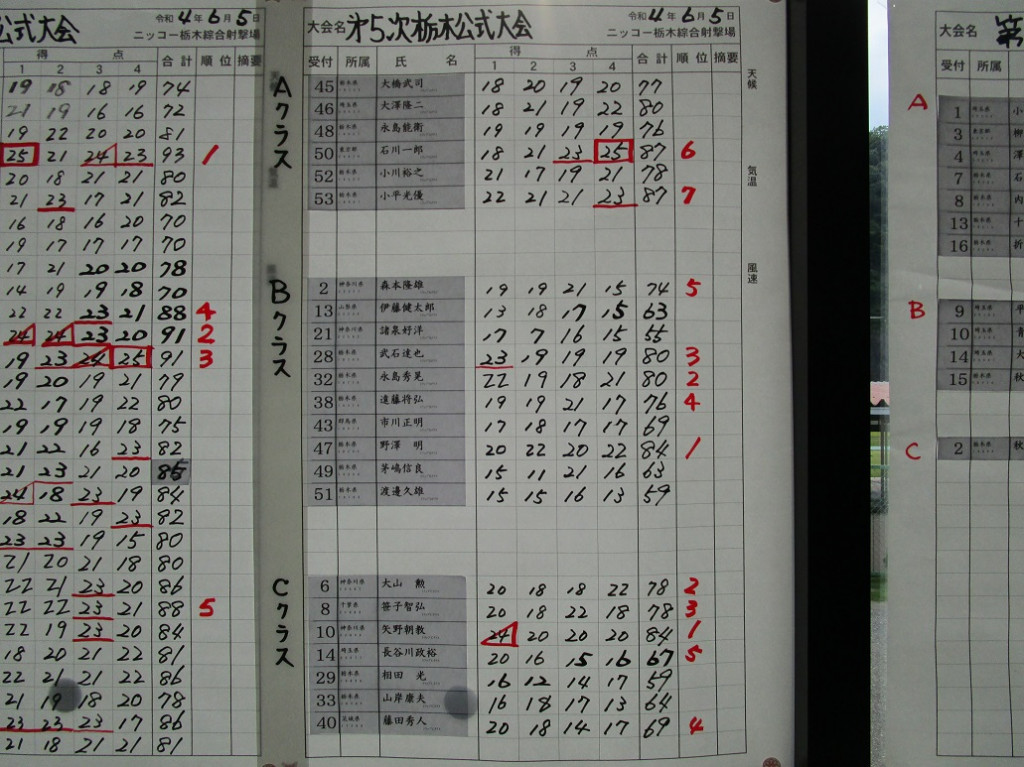 公式大会
令和 4 年 6 月 5 日
ニッコー栃木綜合射撃場
得 点 合計 順位 摘要
1 2 3 4
19 18 18 19 74
21 19 16 16 72
19 22 20 20 81
25 21 24 23 93 1
20 18 21 21 80
21 23 17 21 82
16 18 16 20 70
19 17 17 17 70
17 21 20 20 78
14 19 19 18 70
22 22 23 21 88 4
24 24 23 20 91 2
19 23 24 25 91 3
19 20 19 21 79
22 17 19 22 80
19 19 19 18 75
21 22 16 23 82
21 23 21 20 85
24 18 23 19 84
18 22 19 23 82
23 23 19 15 80
21 20 21 18 80
22 21 23 20 86
22 22 23 21 88 5
22 19 23 20 84
18 20 21 22 81
22 21 21 22 86
21 19 18 20 78
23 23 23 17 86
21 18 21 21 81
大会名 第5次栃木公式大会
令和 4 年 6 月 5 日
ニッコー栃木綜合射撃場
受付 所属 氏 名 得 点 合計 順位 摘要
1 2 3 4
天候
気温
風速
Aクラス
45 栃木県 大橋武司 18 20 19 20 77
46 埼玉県 大澤隆二 18 21 19 22 80
48 栃木県 永島能衛 19 19 19 19 76
50 東京都 石川一郎 18 21 23 25 87 6
52 栃木県 小川裕之 21 17 19 21 78
53 栃木県 小平光優 22 21 21 23 87 7
Bクラス
2 神奈川県 森本隆雄 19 19 21 15 74 5
13 山梨県 伊藤健太郎 13 18 17 15 63
21 神奈川県 諸泉好洋 17 7 16 15 55
28 栃木県 武石達也 23 19 19 19 80 3
32 栃木県 永島秀晃 22 19 18 21 80 2
38 栃木県 遠藤将弘 19 19 21 17 76 4
43 群馬県 市川正明 17 18 17 17 69
47 栃木県 野澤 明 20 22 20 22 84 1
49 栃木県 茅嶋信良 15 11 21 16 63
51 栃木県 渡邉久雄 15 15 16 13 59
Cクラス
6 神奈川県 大山 勲 20 18 18 22 78 2
8 千葉県 笹子智弘 20 18 22 18 78 3
10 神奈川県 矢野朝教 24 20 20 20 84 1
14 埼玉県 長谷川政裕 20 16 15 16 67 5
29 栃木県 相田 光 16 12 14 17 59
33 栃木県 山岸康夫 16 18 17 13 64
40 茨城県 藤田秀人 20 18 14 17 69 4
大会名 第
受付 所属
A
1 埼玉県 小
3 東京都 柳
4 埼玉県 澤
7 栃木県 石
8 栃木県 内
13 栃木県 十
16 栃木県 折
B
9 埼玉県 平
10 栃木県 青
14 栃木県 大
15 栃木県 秋
C
2 栃木県 秋